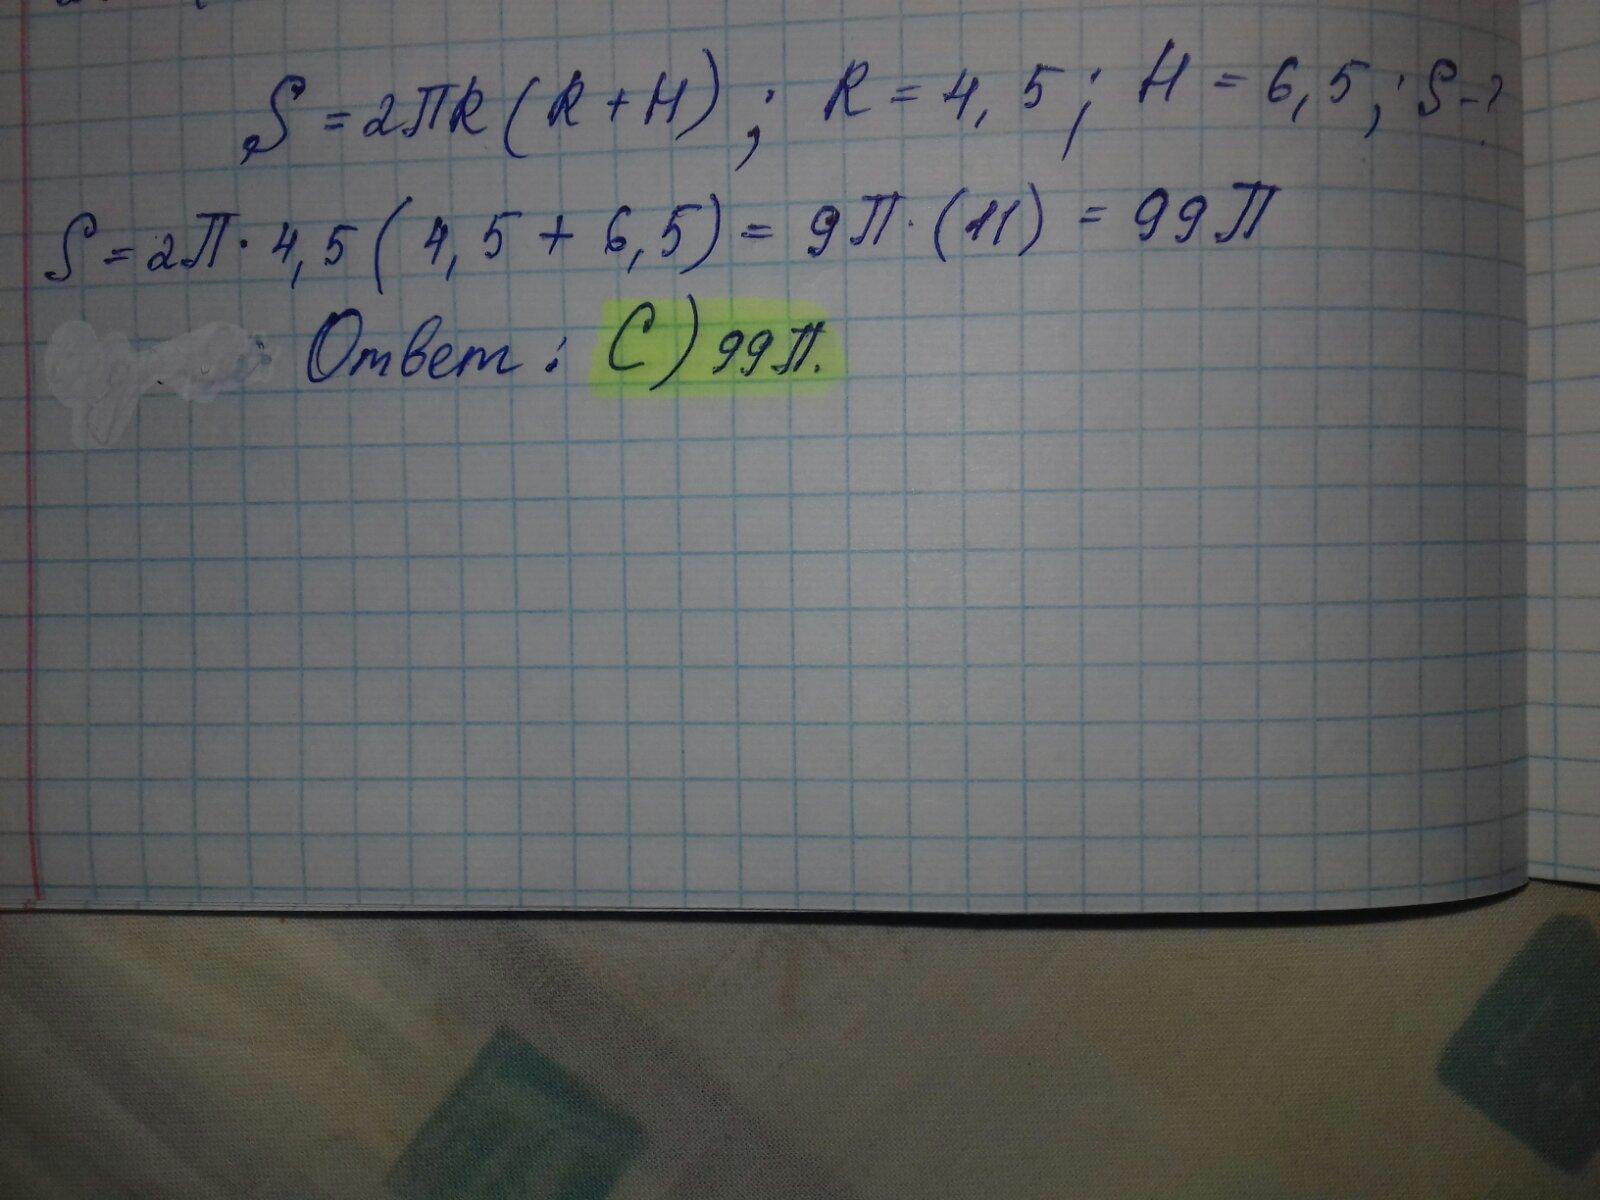 S = 2ПR (R + H) ; R = 4,5 ; H = 6,5 ; S - ?
S = 2П · 4,5 ( 4,5 + 6,5) = 9П · (11) = 99П
Ответ : С) 99П.